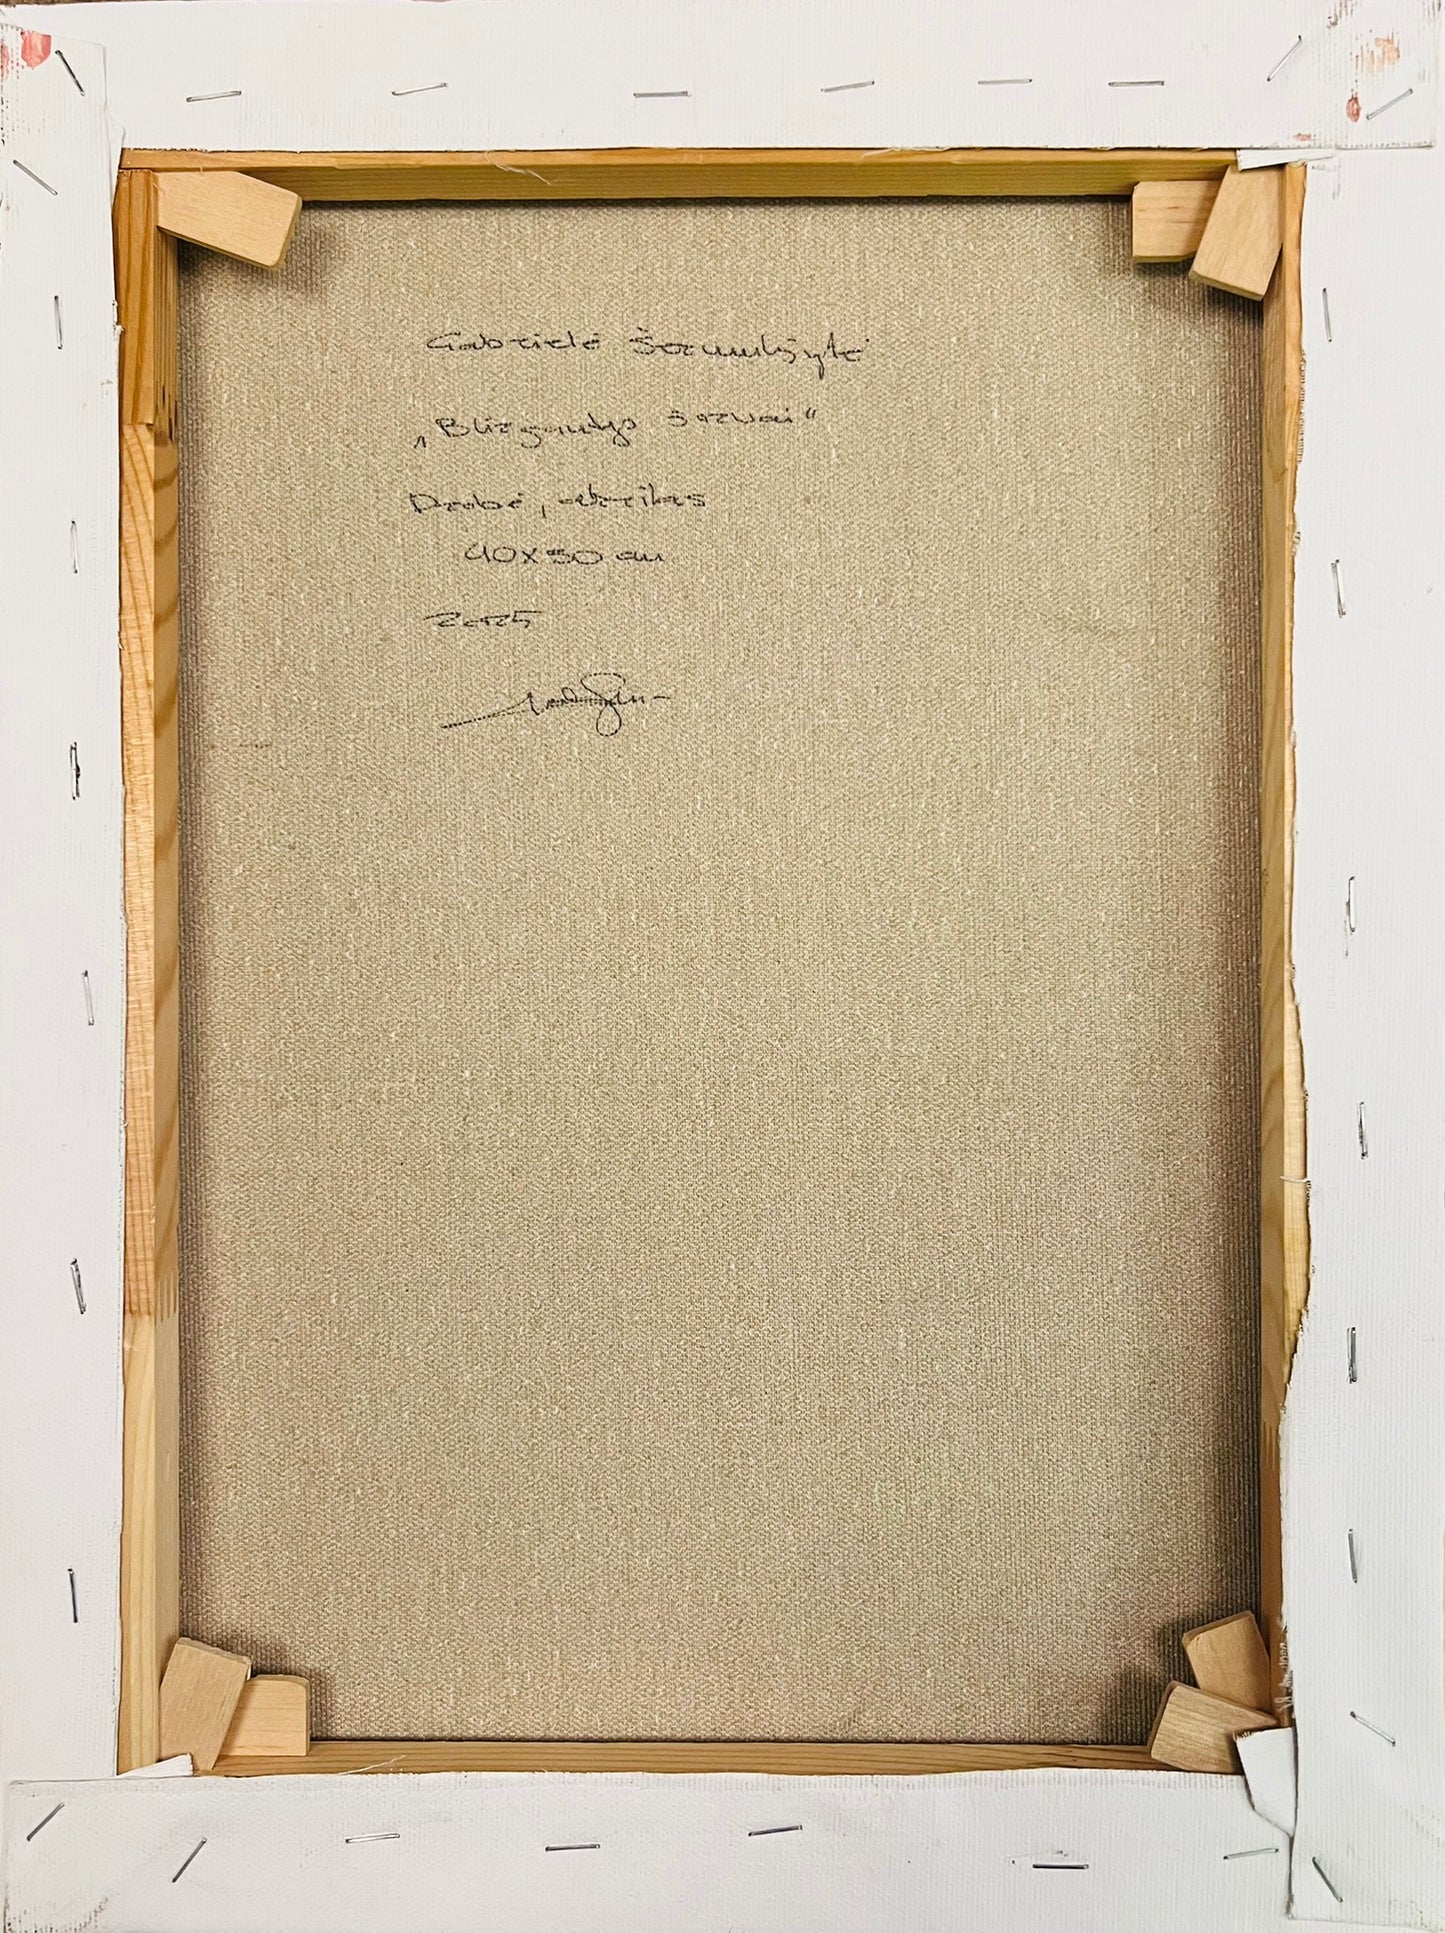 Gabrielė Šerumkšytė
„Blizgantys šarvai“
Drobė, akrilas
40x50 cm
2025